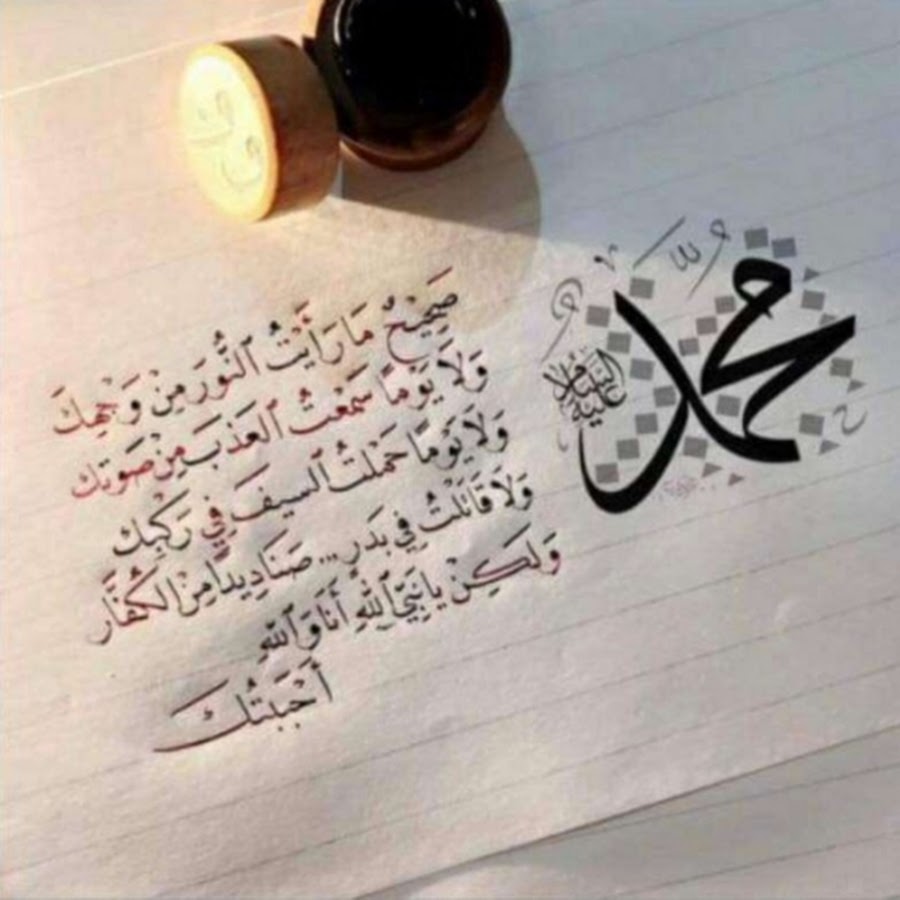 محمد
عليه السلام
صَحِيحٌ مَا رَأَيْتُ ٱلنُّورَ مِنْ وَجْهِكَ
وَلَا يَوْمًا سَمِعْتُ ٱلعَذْبَ مِنْ صَوتِك
وَلَا يَوْمًا حَمَلتُ ٱلسيفَ فِي رَكْبِك
وَلَا قَاتَلْتُ فِي بَدرٍ... صَنَادِيدًا مِنْ الكُفَّار
وَلَكِنْ يا نَبِيَّ ٱللَّهِ أَنَا وَٱللَّهِ
أَحْبَبْتُكَ